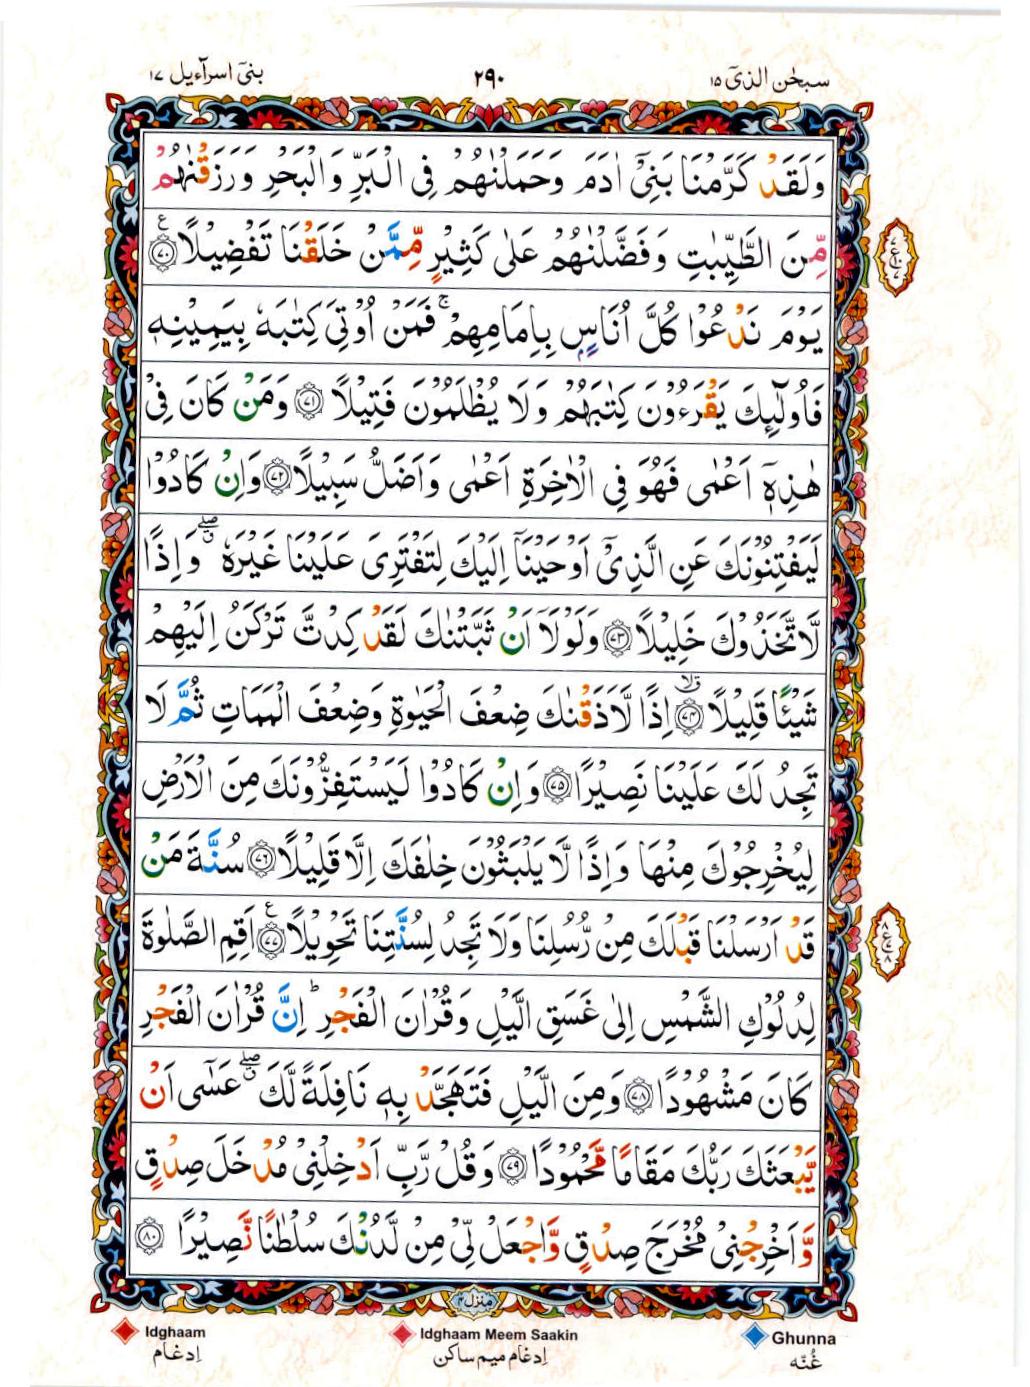 سبحٰن الذیٓ ۱۵ ۲۹۰ بنیٓ اسرآءیل ۱۷
وَلَقَدْ كَرَّمْنَا بَنِیْۤ اٰدَمَ وَحَمَلْنٰهُمْ فِی الْبَرِّ وَالْبَحْرِ وَرَزَقْنٰهُمْ
مِّنَ الطَّیِّبٰتِ وَفَضَّلْنٰهُمْ عَلٰی كَثِیْرٍ مِّمَّنْ خَلَقْنَا تَفْضِیْلًا ۷۰ ع
یَوْمَ نَدْعُوْا كُلَّ اُنَاسٍۭ بِاِمَامِهِمْ ۚ فَمَنْ اُوْتِیَ كِتٰبَهٗ بِیَمِیْنِهٖ
فَاُولٰٓئِكَ یَقْرَءُوْنَ كِتٰبَهُمْ وَلَا یُظْلَمُوْنَ فَتِیْلًا ۷۱ وَمَنْ كَانَ فِیْ
هٰذِهٖۤ اَعْمٰی فَهُوَ فِی الْاٰخِرَةِ اَعْمٰی وَاَضَلُّ سَبِیْلًا ۷۲ وَاِنْ كَادُوْا
لَیَفْتِنُوْنَكَ عَنِ الَّذِیْۤ اَوْحَیْنَاۤ اِلَیْكَ لِتَفْتَرِیَ عَلَیْنَا غَیْرَهٗ ۖق وَاِذًا
لَّاتَّخَذُوْكَ خَلِیْلًا ۷۳ وَلَوْلَاۤ اَنْ ثَبَّتْنٰكَ لَقَدْ كِدْتَّ تَرْكَنُ اِلَیْهِمْ
شَیْئًا قَلِیْلًا ۷۴ قلا اِذًا لَّاَذَقْنٰكَ ضِعْفَ الْحَیٰوةِ وَضِعْفَ الْمَمَاتِ ثُمَّ لَا
تَجِدُ لَكَ عَلَیْنَا نَصِیْرًا ۷۵ وَاِنْ كَادُوْا لَیَسْتَفِزُّوْنَكَ مِنَ الْاَرْضِ
لِیُخْرِجُوْكَ مِنْهَا وَاِذًا لَّا یَلْبَثُوْنَ خِلٰفَكَ اِلَّا قَلِیْلًا ۷۶ سُنَّةَ مَنْ
قَدْ اَرْسَلْنَا قَبْلَكَ مِنْ رُّسُلِنَا وَلَا تَجِدُ لِسُنَّتِنَا تَحْوِیْلًا ۷۷ ع اَقِمِ الصَّلٰوةَ
لِدُلُوْكِ الشَّمْسِ اِلٰی غَسَقِ الَّیْلِ وَقُرْاٰنَ الْفَجْرِ ؕ اِنَّ قُرْاٰنَ الْفَجْرِ
كَانَ مَشْهُوْدًا ۷۸ وَمِنَ الَّیْلِ فَتَهَجَّدْ بِهٖ نَافِلَةً لَّكَ ۖق عَسٰۤی اَنْ
یَّبْعَثَكَ رَبُّكَ مَقَامًا مَّحْمُوْدًا ۷۹ وَقُلْ رَّبِّ اَدْخِلْنِیْ مُدْخَلَ صِدْقٍ
وَّاَخْرِجْنِیْ مُخْرَجَ صِدْقٍ وَّاجْعَلْ لِّیْ مِنْ لَّدُنْكَ سُلْطٰنًا نَّصِیْرًا ۸۰
منزل ۴
Idghaam Idghaam Meem Saakin Ghunna
اِدغام اِدغام میم ساکن غُنّه